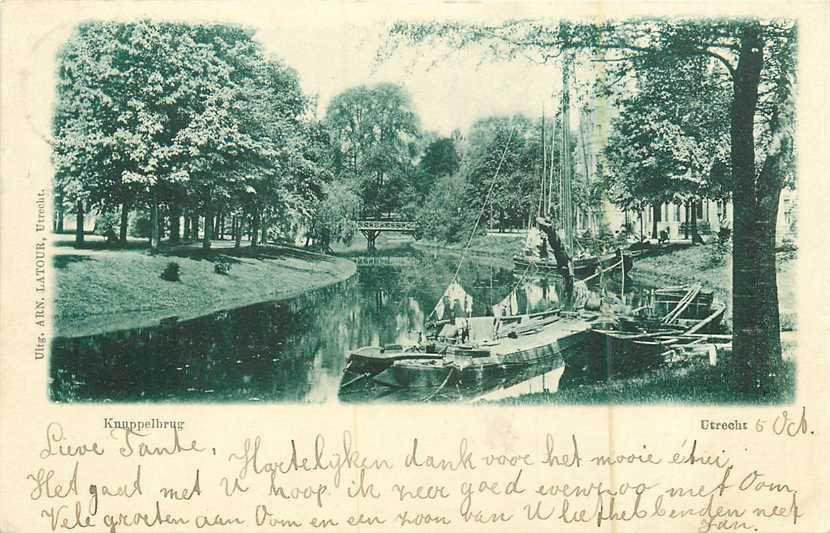 Uitg. ARN. LATOUR, Utrecht.
Knuppelbrug
Utrecht 5 Oct.
Lieve Tante,
Hartelyken dank voor het mooie étui
Het gaat met U hoop ik zeer goed evenzoo met Oom
Vele groeten aan Oom en een zoon van U liefhebbenden neef
Jan.